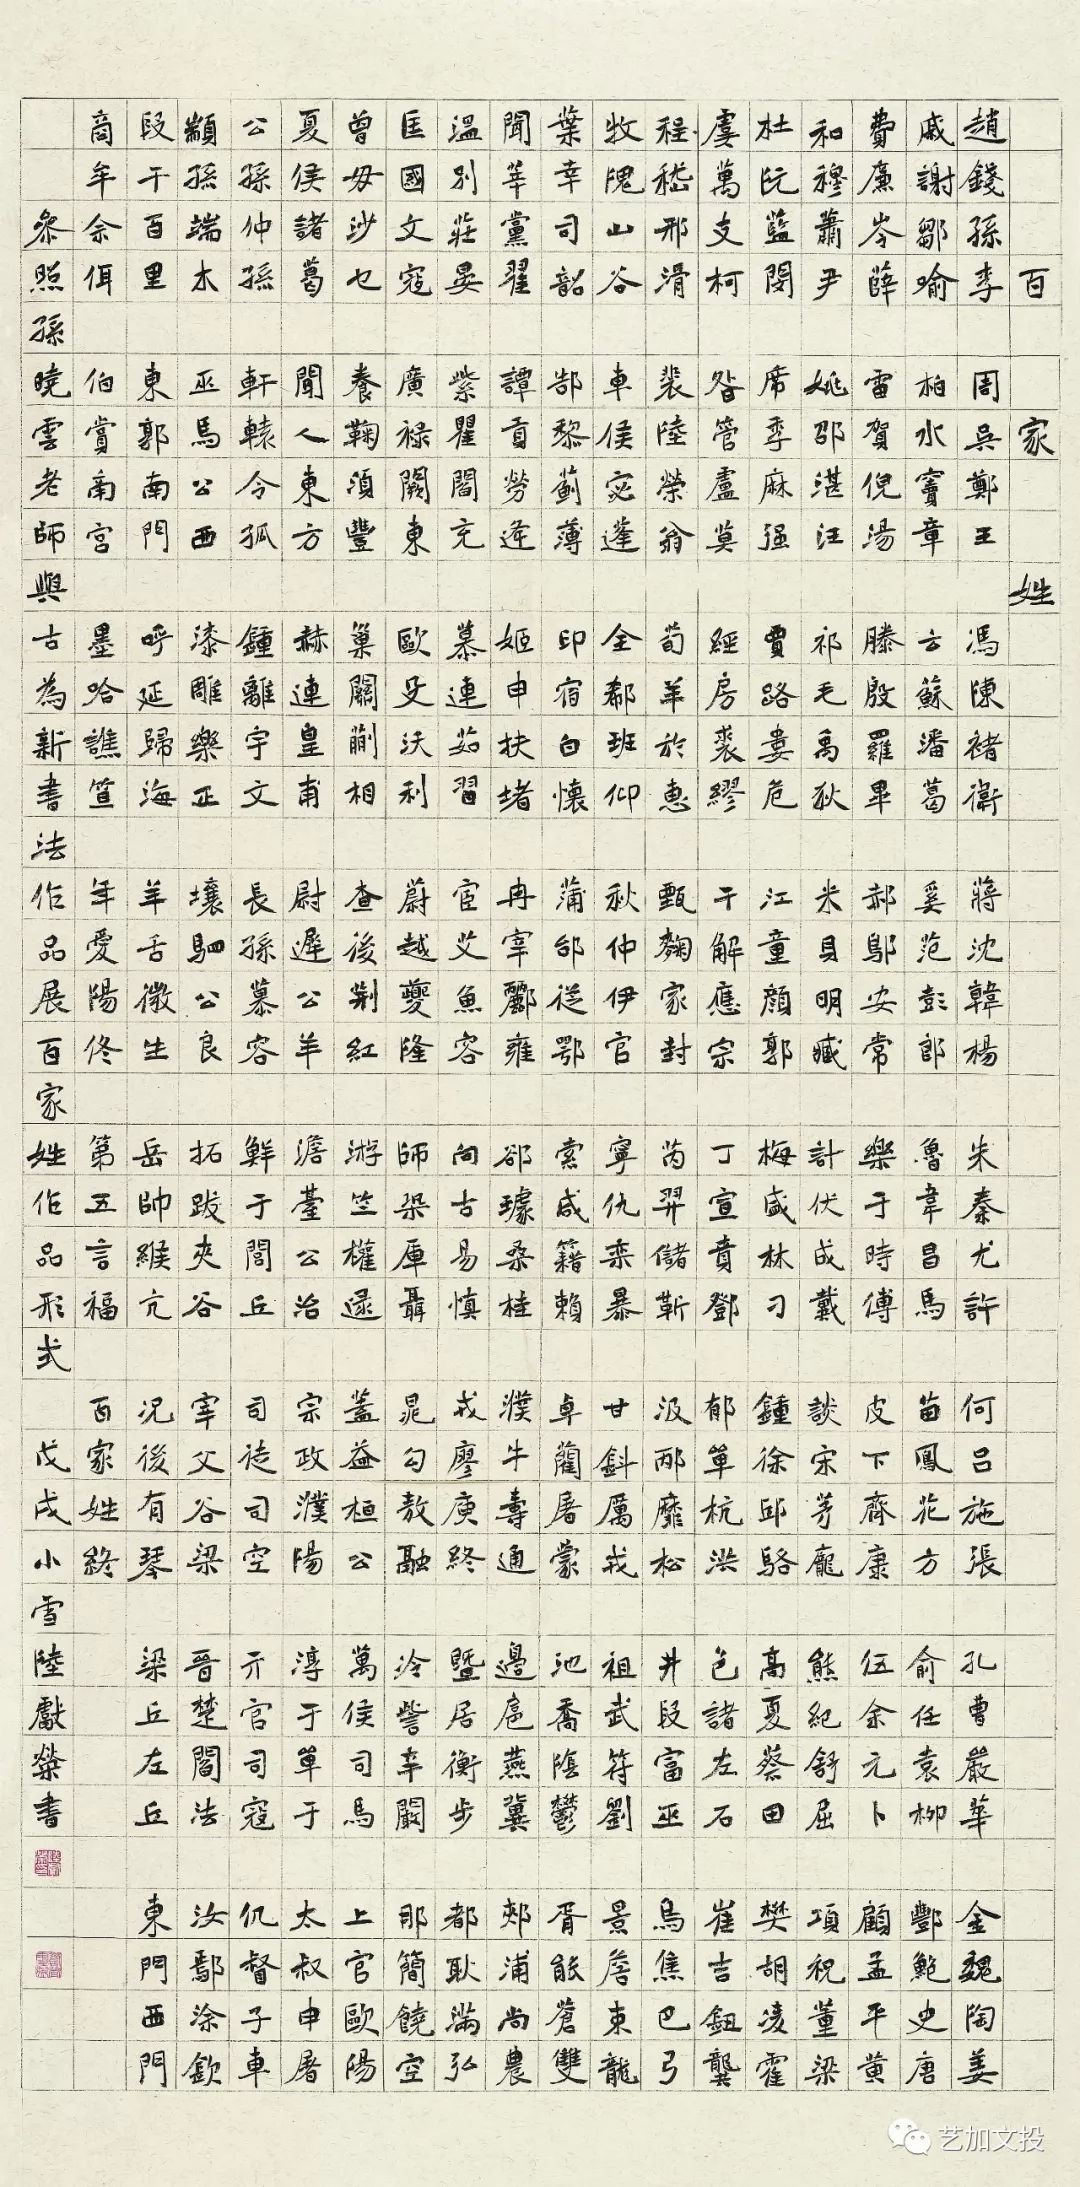 百家姓
趙錢孫李 周吳鄭王 馮陳褚衛 蔣沈韓楊 朱秦尤許 何呂施張 孔曹嚴華 金魏陶姜
戚謝鄒喻 柏水竇章 云蘇潘葛 奚范彭郎 魯韋昌馬 苗鳳花方 俞任袁柳 酆鮑史唐
費廉岑薛 雷賀倪湯 滕殷羅畢 郝鄔安常 樂于時傅 皮卞齊康 伍余元卜 顧孟平黃
和穆蕭尹 姚邵湛汪 祁毛禹狄 米貝明臧 計伏成戴 談宋茅龐 熊紀舒屈 項祝董梁
杜阮藍閔 席季麻强 賈路婁危 江童顏郭 梅盛林刁 鍾徐邱駱 高夏蔡田 樊胡凌霍
虞萬支柯 昝管盧莫 經房裘繆 干解應宗 丁宣賁鄧 郁單杭洪 包諸左石 崔吉鈕龔
程嵇邢滑 裴陸榮翁 荀羊於惠 甄麴家封 芮羿儲靳 汲邴糜松 井段富巫 烏焦巴弓
牧隗山谷 車侯宓蓬 全郗班仰 秋仲伊宮 寧仇欒暴 甘鈄厲戎 祖武符劉 景詹束龍
葉幸司韶 郜黎薊薄 印宿白懷 蒲邰從鄂 索咸籍賴 卓藺屠蒙 池喬陰鬱 胥能蒼雙
聞莘黨翟 譚貢勞逄 姬申扶堵 冉宰酈雍 郤璩桑桂 濮牛壽通 邊扈燕冀 郟浦尚農
溫別莊晏 柴瞿閻充 慕連茹習 宦艾魚容 向古易慎 戈廖庾終 暨居衡步 都耿滿弘
匡國文寇 廣祿闕東 歐殳沃利 蔚越夔隆 師鞏厙聶 晁勾敖融 冷訾辛闞 那簡饒空
曾毋沙乜 養鞠須豐 巢關蒯相 查後荊紅 游竺權逯 蓋益桓公 萬俟司馬 上官歐陽
夏侯諸葛 聞人東方 赫連皇甫 尉遲公羊 澹臺公冶 宗政濮陽 淳于單于 太叔申屠
公孫仲孫 軒轅令狐 鍾離宇文 長孫慕容 鮮于閭丘 司徒司空 亓官司寇 仉督子車
顓孫端木 巫馬公西 漆雕樂正 壤駟公良 拓跋夾谷 宰父谷梁 晉楚閻法 汝鄢涂欽
段干百里 東郭南門 呼延歸海 羊舌微生 岳帥緱亢 況後有琴 梁丘左丘 東門西門
商牟佘佴 伯賞南宮 墨哈譙笪 年愛陽佟 第五言福 百家姓終
參照孫曉雲老師與古為新書法作品展百家姓作品形式 戊戌小雪陸獻榮書
艺加文投